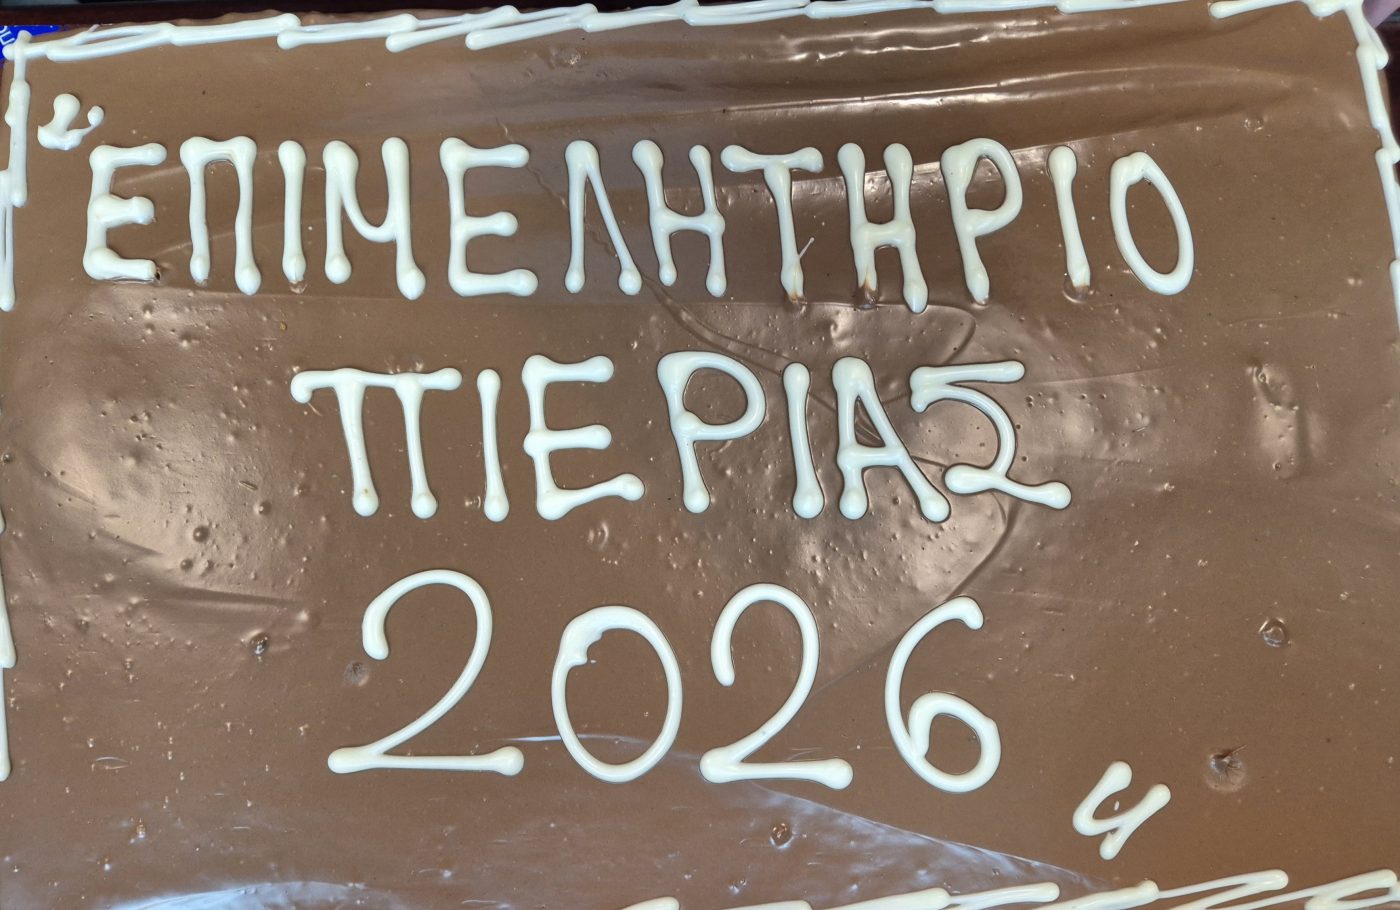 ΕΠΙΜΕΛΗΤΗΡΙΟ
ΠΙΕΡΙΑΣ
2026